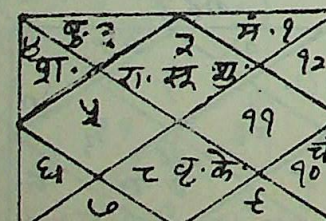 ४ बु. ३ २ मं. १
श. रा. सू शु. १२
५ ११
६ ८ वृ. के. १०
७ ९